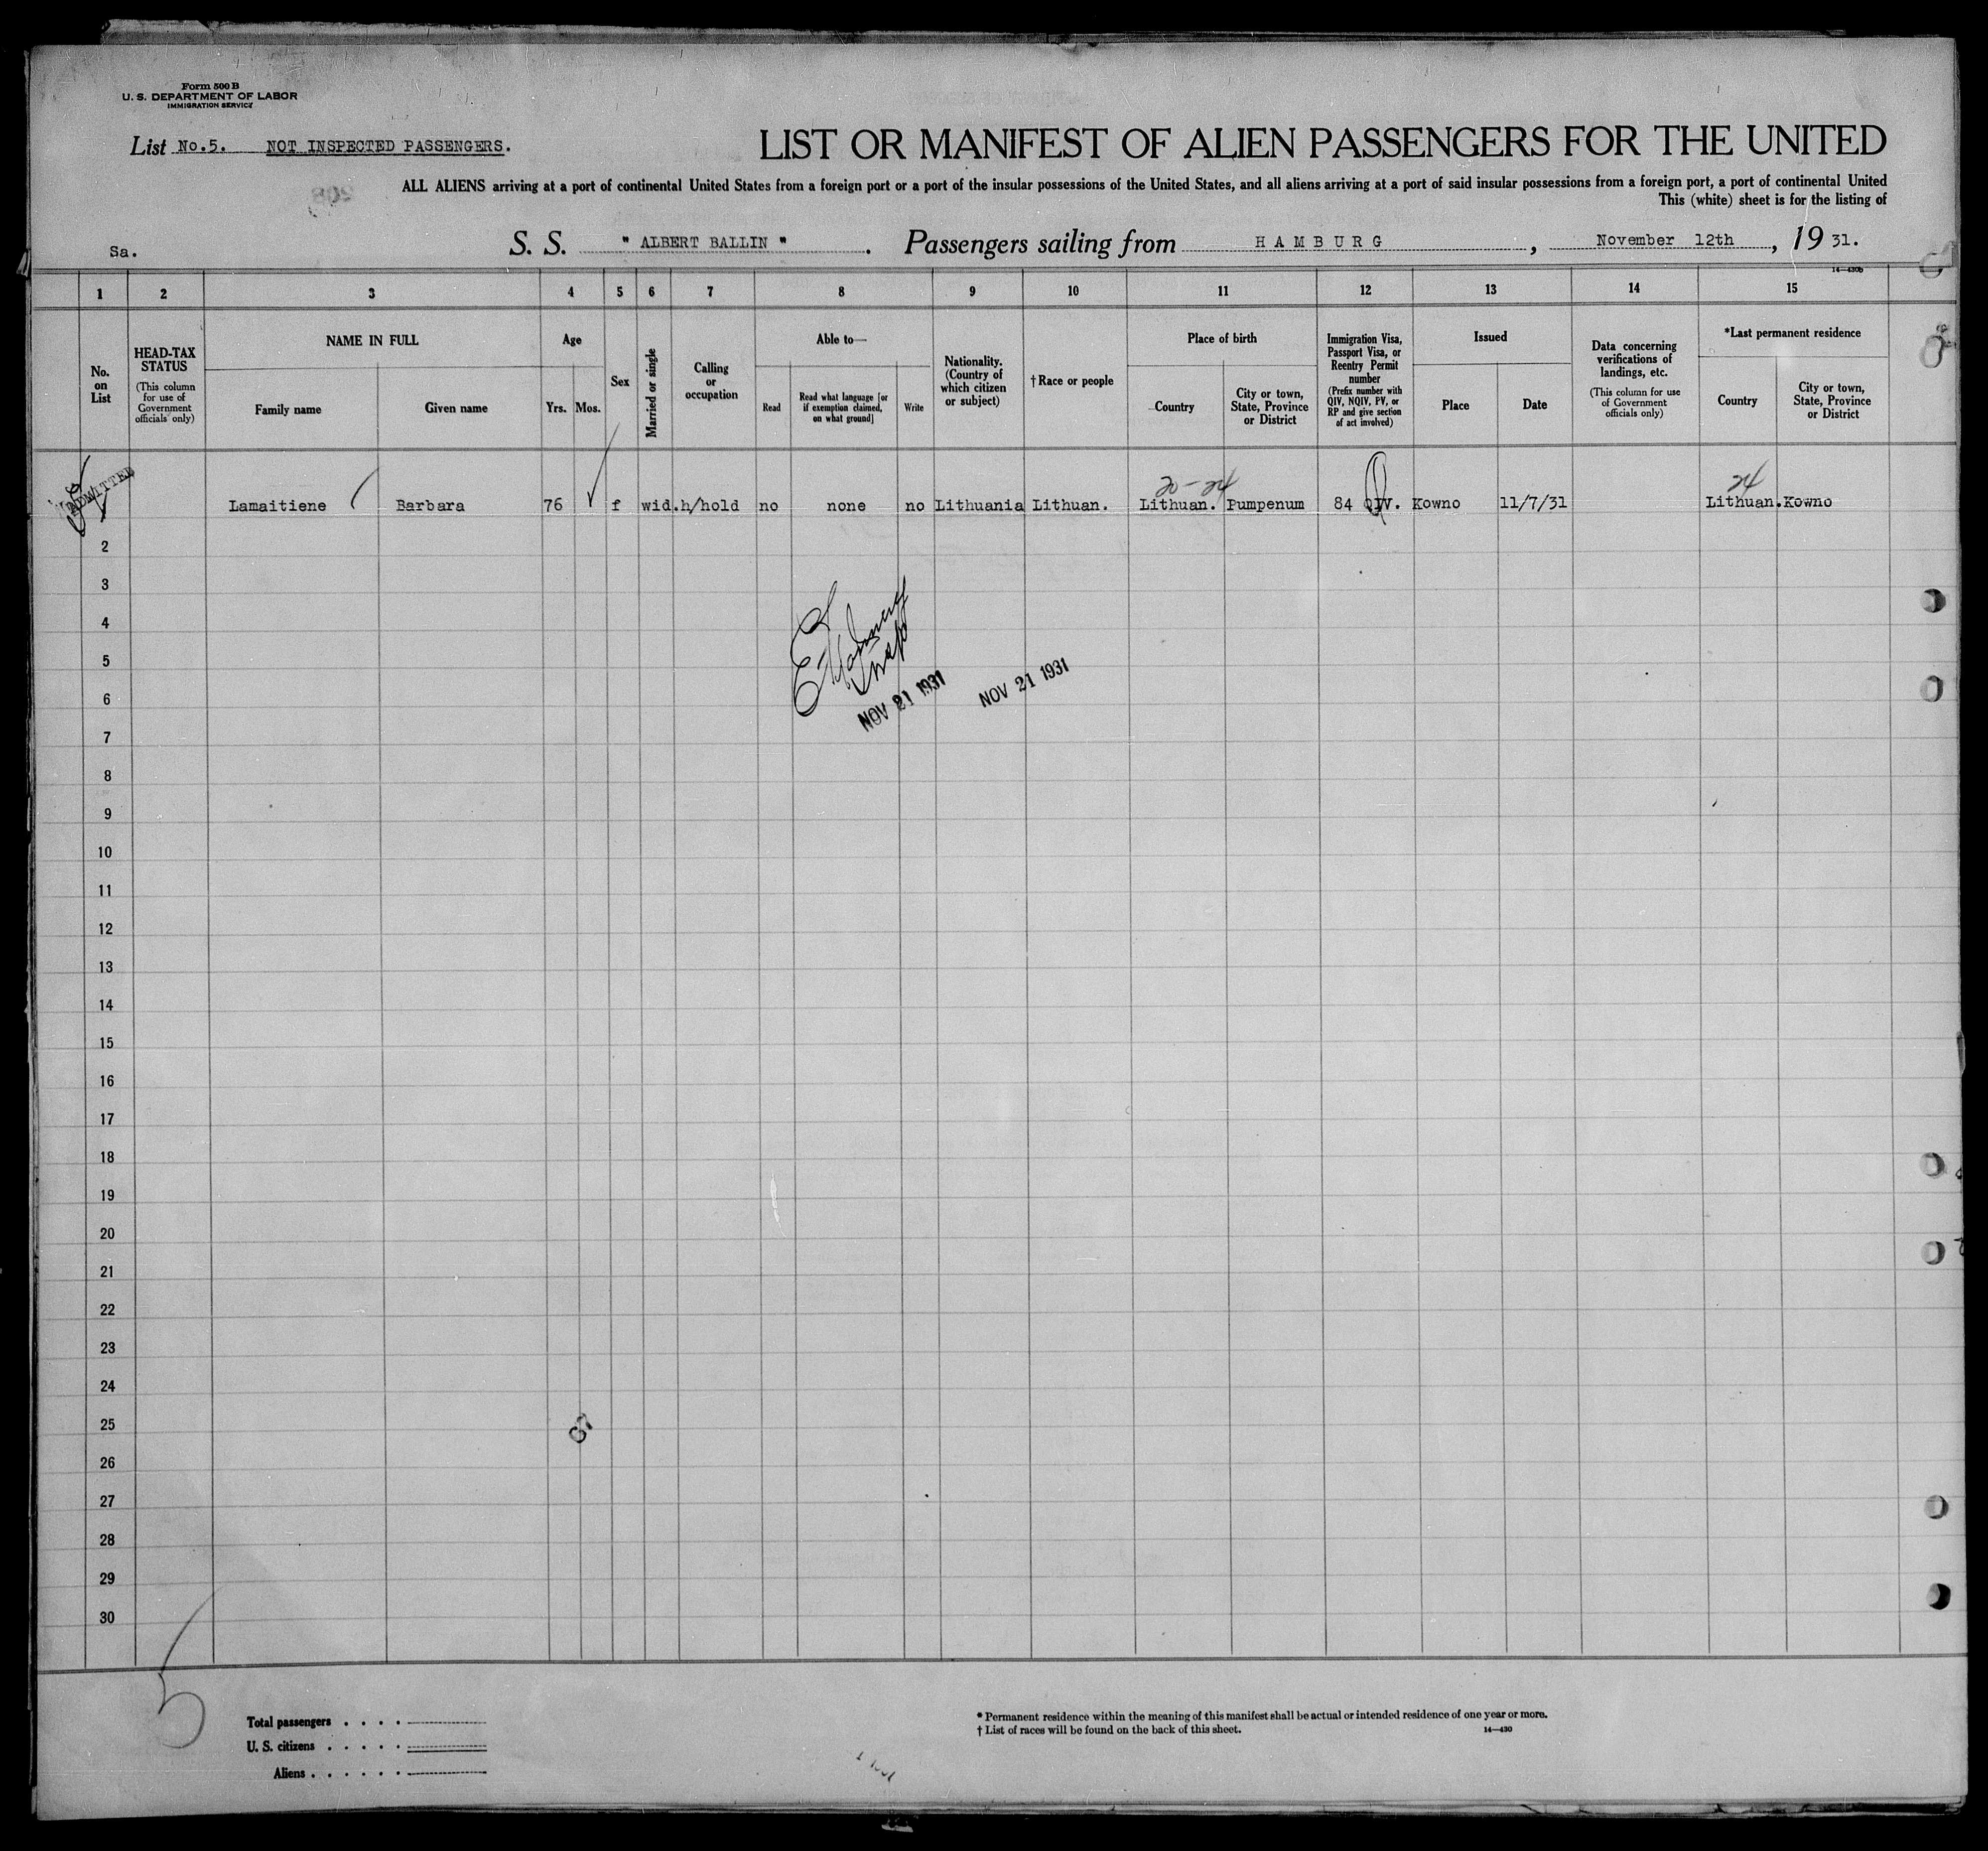 Form 500 B
U. S. DEPARTMENT OF LABOR
IMMIGRATION SERVICE
List No.5. NOT INSPECTED PASSENGERS.
LIST OR MANIFEST OF ALIEN PASSENGERS FOR THE UNITED
ALL ALIENS arriving at a port of continental United States from a foreign port or a port of the insular possessions of the United States, and all aliens arriving at a port of said insular possessions from a foreign port, a port of continental United
This (white) sheet is for the listing of
Sa.
S. S. " ALBERT BALLIN " . Passengers sailing from HAMBURG , November 12th , 19 31.
14—430b
1 2 3 4 5 6 7 8 9 10 11 12 13 14 15
No. on List
HEAD-TAX STATUS
(This column for use of Government officials only)
NAME IN FULL
Family name
Given name
Age
Yrs.
Mos.
Sex
Married or single
Calling or occupation
Able to—
Read
Read what language [or if exemption claimed, on what ground]
Write
Nationality. (Country of which citizen or subject)
†Race or people
Place of birth
Country
City or town, State, Province or District
Immigration Visa, Passport Visa, or Reentry Permit number
(Prefix number with QIV, NQIV, PV, or RP and give section of act involved)
Issued
Place
Date
Data concerning verifications of landings, etc.
(This column for use of Government officials only)
*Last permanent residence
Country
City or town, State, Province or District
ADMITTED
20-24
24
Lamaitiene Barbara 76 f wid. h/hold no none no Lithuania Lithuan. Lithuan. Pumpenum 84 QIV. Kowno 11/7/31 Lithuan. Kowno
2
3
4
5
6
NOV 21 1931 NOV 21 1931
7
8
9
10
11
12
13
14
15
16
17
18
19
20
21
22
23
24
25
26
27
28
29
30
5
Total passengers . . . .
U. S. citizens . . . . .
Aliens . . . . . .
* Permanent residence within the meaning of this manifest shall be actual or intended residence of one year or more.
† List of races will be found on the back of this sheet.
14—430